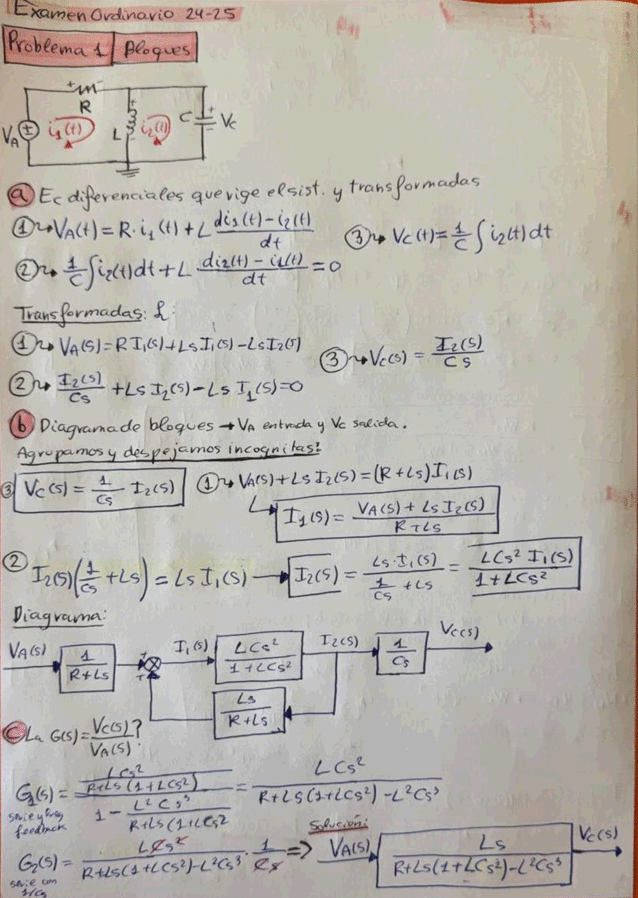 Examen Ordinario 24-25
Problema 1 Bloques
+ R
V_A ± i₁(t) L + i₂(t) C + V_C
a Ec diferenciales que rige el sist. y transformadas
① V_A(t) = R·i₁(t) + L di₁(t)-i₂(t)/dt ③ V_C(t) = 1/C ∫ i₂(t)dt
② 1/C ∫ i₂(t)dt + L di₂(t)-i₁(t)/dt = 0
Transformadas: L:
① V_A(s) = R I₁(s) + Ls I₁(s) - Ls I₂(s) ③ V_C(s) = I₂(s)/Cs
② I₂(s)/Cs + Ls I₂(s) - Ls I₁(s) = 0
b Diagrama de bloques → V_A entrada y V_C salida.
Agrupamos y despejamos incognitas:
③ V_C(s) = 1/Cs I₂(s) ① V_A(s) + Ls I₂(s) = (R+Ls) I₁(s)
I₁(s) = V_A(s) + Ls I₂(s)/R+Ls
② I₂(s)(1/Cs + Ls) = Ls I₁(s) → I₂(s) = Ls·I₁(s)/1/Cs + Ls = LCs² I₁(s)/1+LCs²
Diagrama:
V_A(s) 1/R+Ls + + I₁(s) LCs²/1+LCs² I₂(s) 1/Cs V_C(s)
Ls/R+Ls
c La G(s) = V_C(s)/V_A(s)?
G₁(s) = LCs²/R+Ls(1+LCs²)/1 - L²Cs³/R+Ls(1+LCs² = LCs²/R+Ls(1+LCs²)-L²Cs³
serie y
feedback
G₂(s) = LCs²/R+Ls(1+LCs²)-L²Cs³ · 1/Cs ⇒ Solución: V_A(s) Ls/R+Ls(1+LCs²)-L²Cs³ V_C(s)
serie con
1/Cs